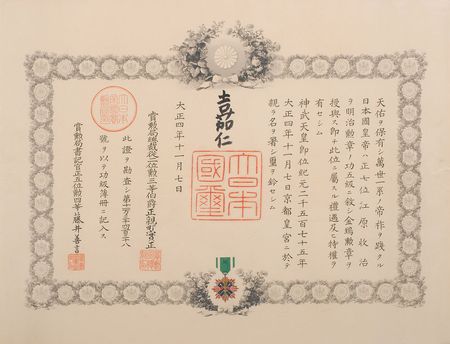 天佑ヲ保有シ萬世一系ノ帝祚ヲ踐タル
日本國皇帝ハ正七位江原政治
ヲ明治勲章ノ功五級ニ敘シ金鵄勲章ヲ
授與ス即チ此位ニ屬スル禮遇及ヒ特權ヲ
有セシム
神武天皇即位紀元二千五百七十五年
大正四年十一月七日京都皇宮ニ於テ
親ラ名ヲ署シ璽ヲ鈐セシム
嘉仁
大日本國璽
大正四年十一月七日
賞勲局總裁從二位勲三等伯爵正親町實正
此證ヲ勘査シ第
號ヲ以テ功級簿冊ニ記入ス
賞勲局書記官正五位勲四等藤井善言